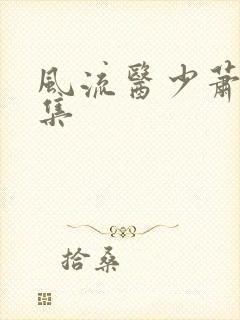 風流醫少蕭
集
拾桑